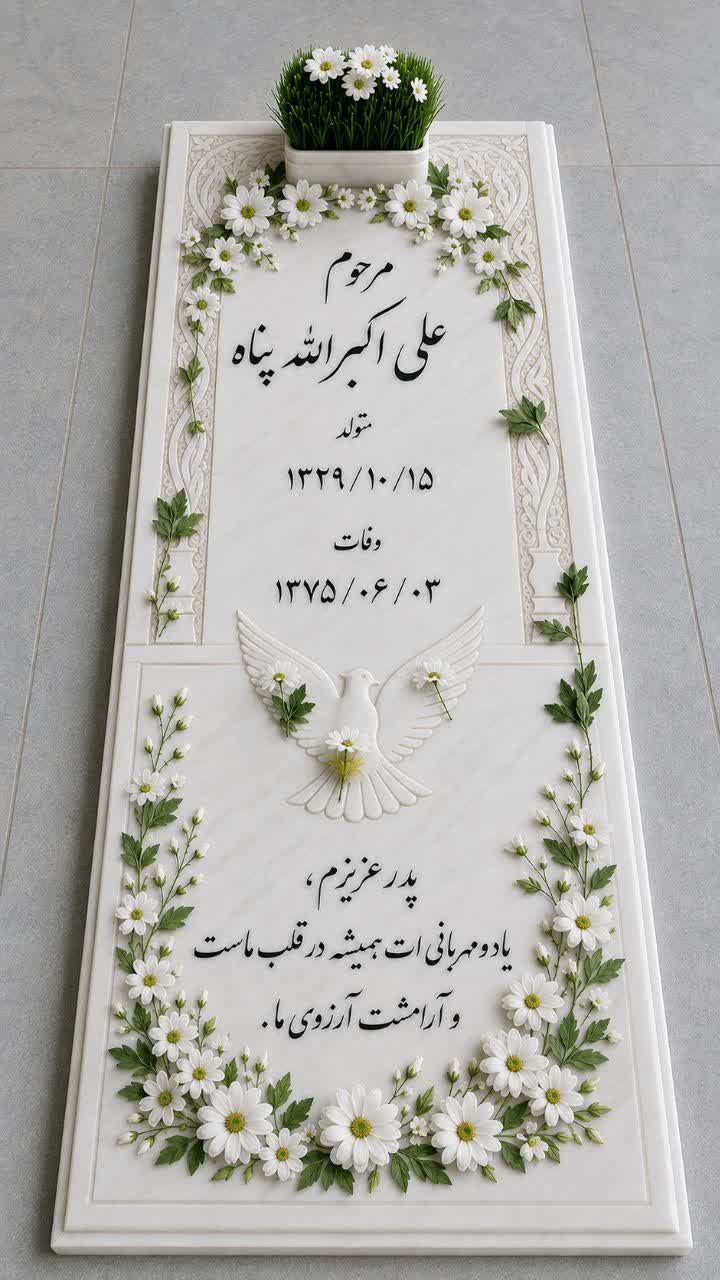 مرحوم
علی اکبر الله پناه
متولد
۱۳۲۹/۱۰/۱۵
وفات
۱۳۷۵/۰۶/۰۳
پدر عزیزم ،
یاد و مهربانی ات همیشه در قلب ماست
و آرامشت آرزوی ما .